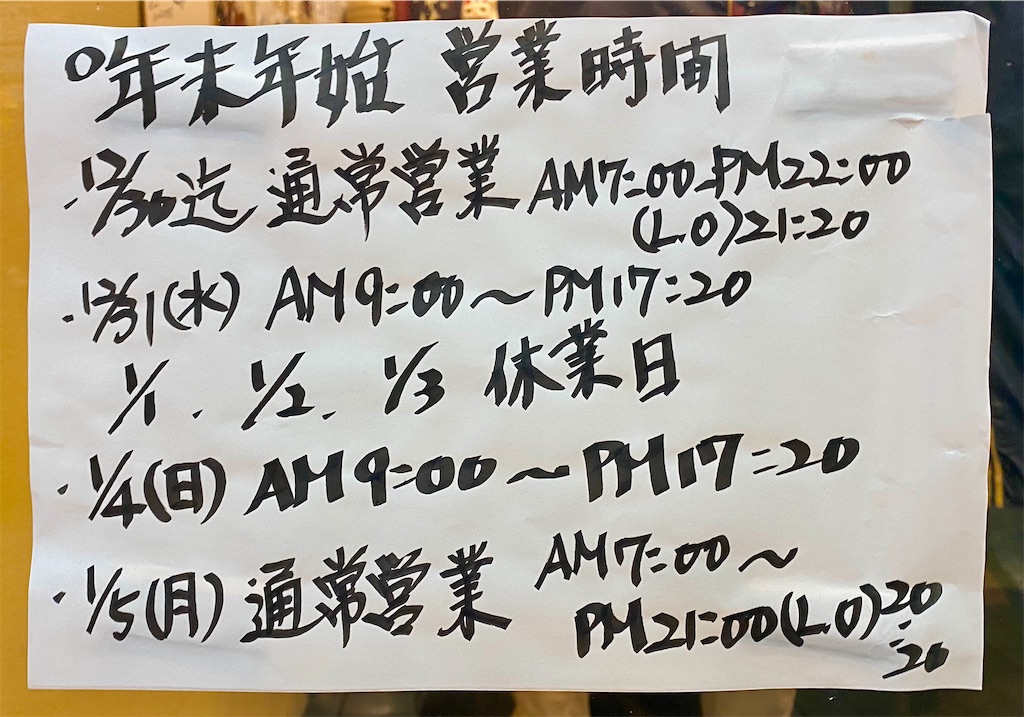 ○年末年始 営業時間
・12/30迄 通常営業 AM7:00~PM22:00
(L.O)21:20
・12/31(水) AM9:00〜PM17:20
1/1. 1/2. 1/3 休業日
・1/4(日) AM9:00〜PM17:20
・1/5(月) 通常営業 AM7:00〜
PM21:00(L.O)20:20